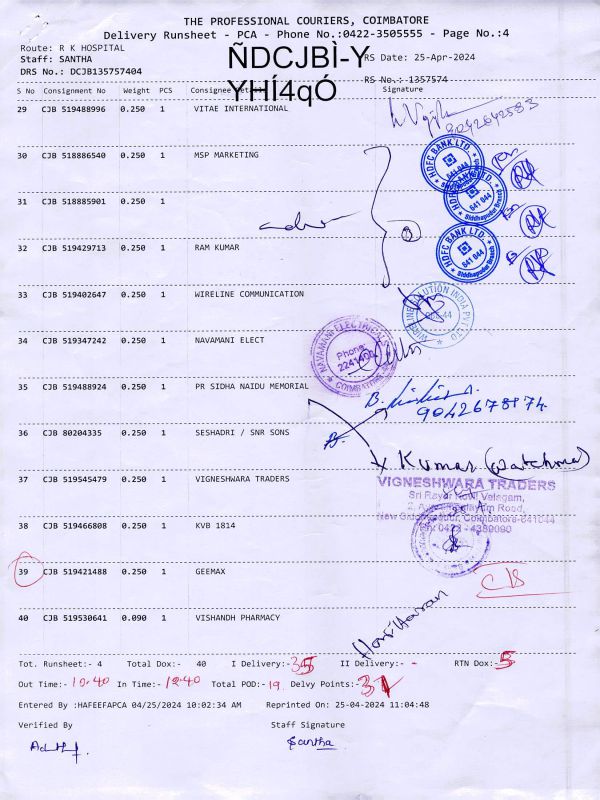 THE PROFESSIONAL COURIERS, COIMBATORE
Delivery Runsheet - PCA - Phone No.:0422-3505555 - Page No.:4
Route: R K HOSPITAL
ÑDCJBÌ-Y
RS Date: 25-Apr-2024
Staff: SANTHA
DRS No.: DCJB135757404
YHÍ4qÓ
RS No.: 1357574
S No Consignment No Weight PCS Consignee Details Signature
29 CJB 519488996 0.250 1 VITAE INTERNATIONAL
9042642583
30 CJB 518886540 0.250 1 MSP MARKETING
HDFC BANK LTD.
641 044
31 CJB 518885901 0.250 1
641 044
Siddhapudur Branch
32 CJB 519429713 0.250 1 RAM KUMAR
HDFC BANK LTD.
641 044
Siddhapudur Branch
33 CJB 519402647 0.250 1 WIRELINE COMMUNICATION
34 CJB 519347242 0.250 1 NAVAMANI ELECT
NAVAMANI ELECTRICALS
Phone:
COIMBATORE
35 CJB 519488924 1 0.250 PR SIDHA NAIDU MEMORIAL
9042678174
36 CJB 80204335 0.250 1 SESHADRI / SNR SONS
Kumar (watchman)
37 CJB 519545479 0.250 1 VIGNESHWARA TRADERS
VIGNESHWARA TRADERS
38 CJB 519466808 0.250 1 KVB 1814
39 CJB 519421488 0.250 1 GEEMAX
40 CJB 519530641 0.090 1 VISHANDH PHARMACY
Hariharan
Tot. Runsheet:- 4 Total Dox:- 40 I Delivery:- 35 II Delivery:- - RTN Dox:- 5
Out Time:- 10.40 In Time:- 12.40 Total POD:- 19 Delvy Points:-
Entered By :HAFEEFAPCA 04/25/2024 10:02:34 AM Reprinted On: 25-04-2024 11:04:48
Verified By Staff Signature
Santha